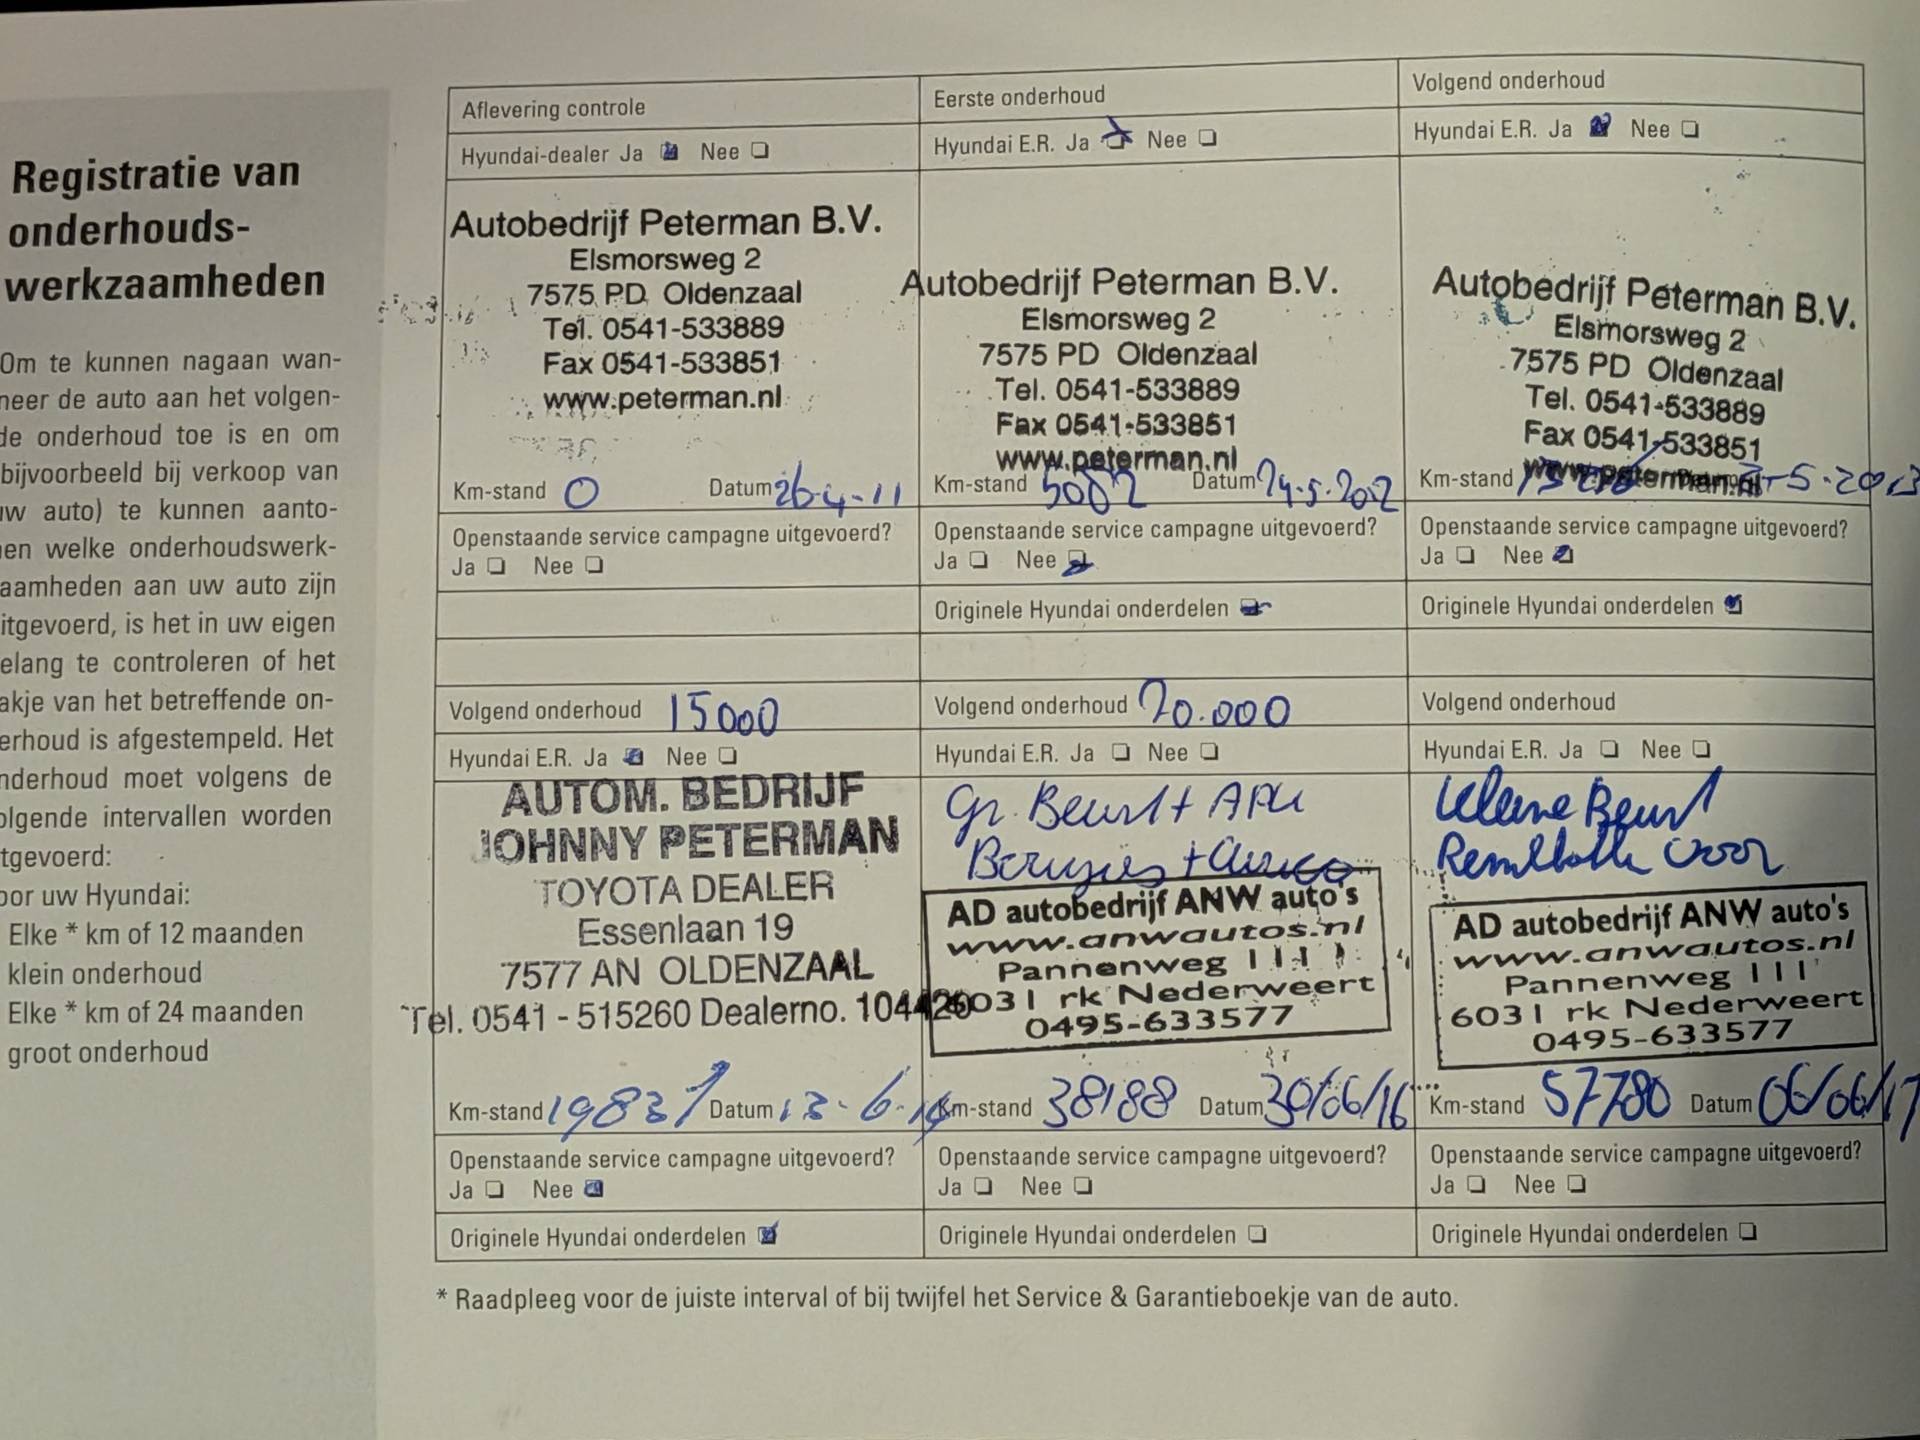 Registratie van
onderhouds-
werkzaamheden
Om te kunnen nagaan wan-
neer de auto aan het volgen-
de onderhoud toe is en om
bijvoorbeeld bij verkoop van
uw auto) te kunnen aanto-
nen welke onderhoudswerk-
aamheden aan uw auto zijn
itgevoerd, is het in uw eigen
elang te controleren of het
akje van het betreffende on-
erhoud is afgestempeld. Het
nderhoud moet volgens de
olgende intervallen worden
tgevoerd:
oor uw Hyundai:
Elke * km of 12 maanden
klein onderhoud
Elke * km of 24 maanden
groot onderhoud
Aflevering controle
Hyundai-dealer Ja Nee
Autobedrijf Peterman B.V.
Elsmorsweg 2
7575 PD Oldenzaal
Tel. 0541-533889
Fax 0541-533851
www.peterman.nl
Km-stand 0 Datum 26-4-11
Openstaande service campagne uitgevoerd?
Ja Nee
Eerste onderhoud
Hyundai E.R. Ja Nee
Autobedrijf Peterman B.V.
Elsmorsweg 2
7575 PD Oldenzaal
Tel. 0541-533889
Fax 0541-533851
www.peterman.nl
Km-stand Datum
Openstaande service campagne uitgevoerd?
Ja Nee
Originele Hyundai onderdelen
Volgend onderhoud
Hyundai E.R. Ja Nee
Autobedrijf Peterman B.V.
Elsmorsweg 2
7575 PD Oldenzaal
Tel. 0541-533889
Fax 0541-533851
www.peterman.nl
Km-stand
Openstaande service campagne uitgevoerd?
Ja Nee
Originele Hyundai onderdelen
Volgend onderhoud 15000
Hyundai E.R. Ja Nee
AUTOM. BEDRIJF
JOHNNY PETERMAN
TOYOTA DEALER
Essenlaan 19
7577 AN OLDENZAAL
Tel. 0541 - 515260 Dealerno. 104420
Km-stand Datum 13-6-14
Openstaande service campagne uitgevoerd?
Ja Nee
Originele Hyundai onderdelen
Volgend onderhoud 20.000
Hyundai E.R. Ja Nee
Gr. Beurt + APK
Bougies +
AD autobedrijf ANW auto's
www.anwautos.nl
Pannenweg 111
6031 rk Nederweert
0495-633577
Km-stand 38188 Datum 30/06/16
Openstaande service campagne uitgevoerd?
Ja Nee
Originele Hyundai onderdelen
Volgend onderhoud
Hyundai E.R. Ja Nee
Kleine Beurt
Remblokken voor
AD autobedrijf ANW auto's
www.anwautos.nl
Pannenweg 111
6031 rk Nederweert
0495-633577
Km-stand 57780 Datum 06/06/17
Openstaande service campagne uitgevoerd?
Ja Nee
Originele Hyundai onderdelen
* Raadpleeg voor de juiste interval of bij twijfel het Service & Garantieboekje van de auto.